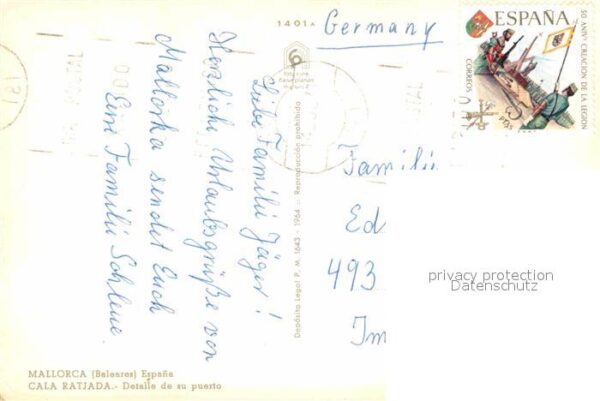 1401A
Germany
ESPAÑA
50 ANIV. CREACION DE LA LEGION
CORREOS
5
PTAS
Liebe Familie Jäger!
Herzliche Urlaubsgrüße von
Mallorka sendet Euch
Eure Familie Schleue
Depósito Legal P. M. 1643 - 1964 .- Reproducción prohibida
Famili
Ed
493
Im
privacy protection
Datenschutz
MALLORCA (Baleares) España
CALA RATJADA.- Detalle de su puerto